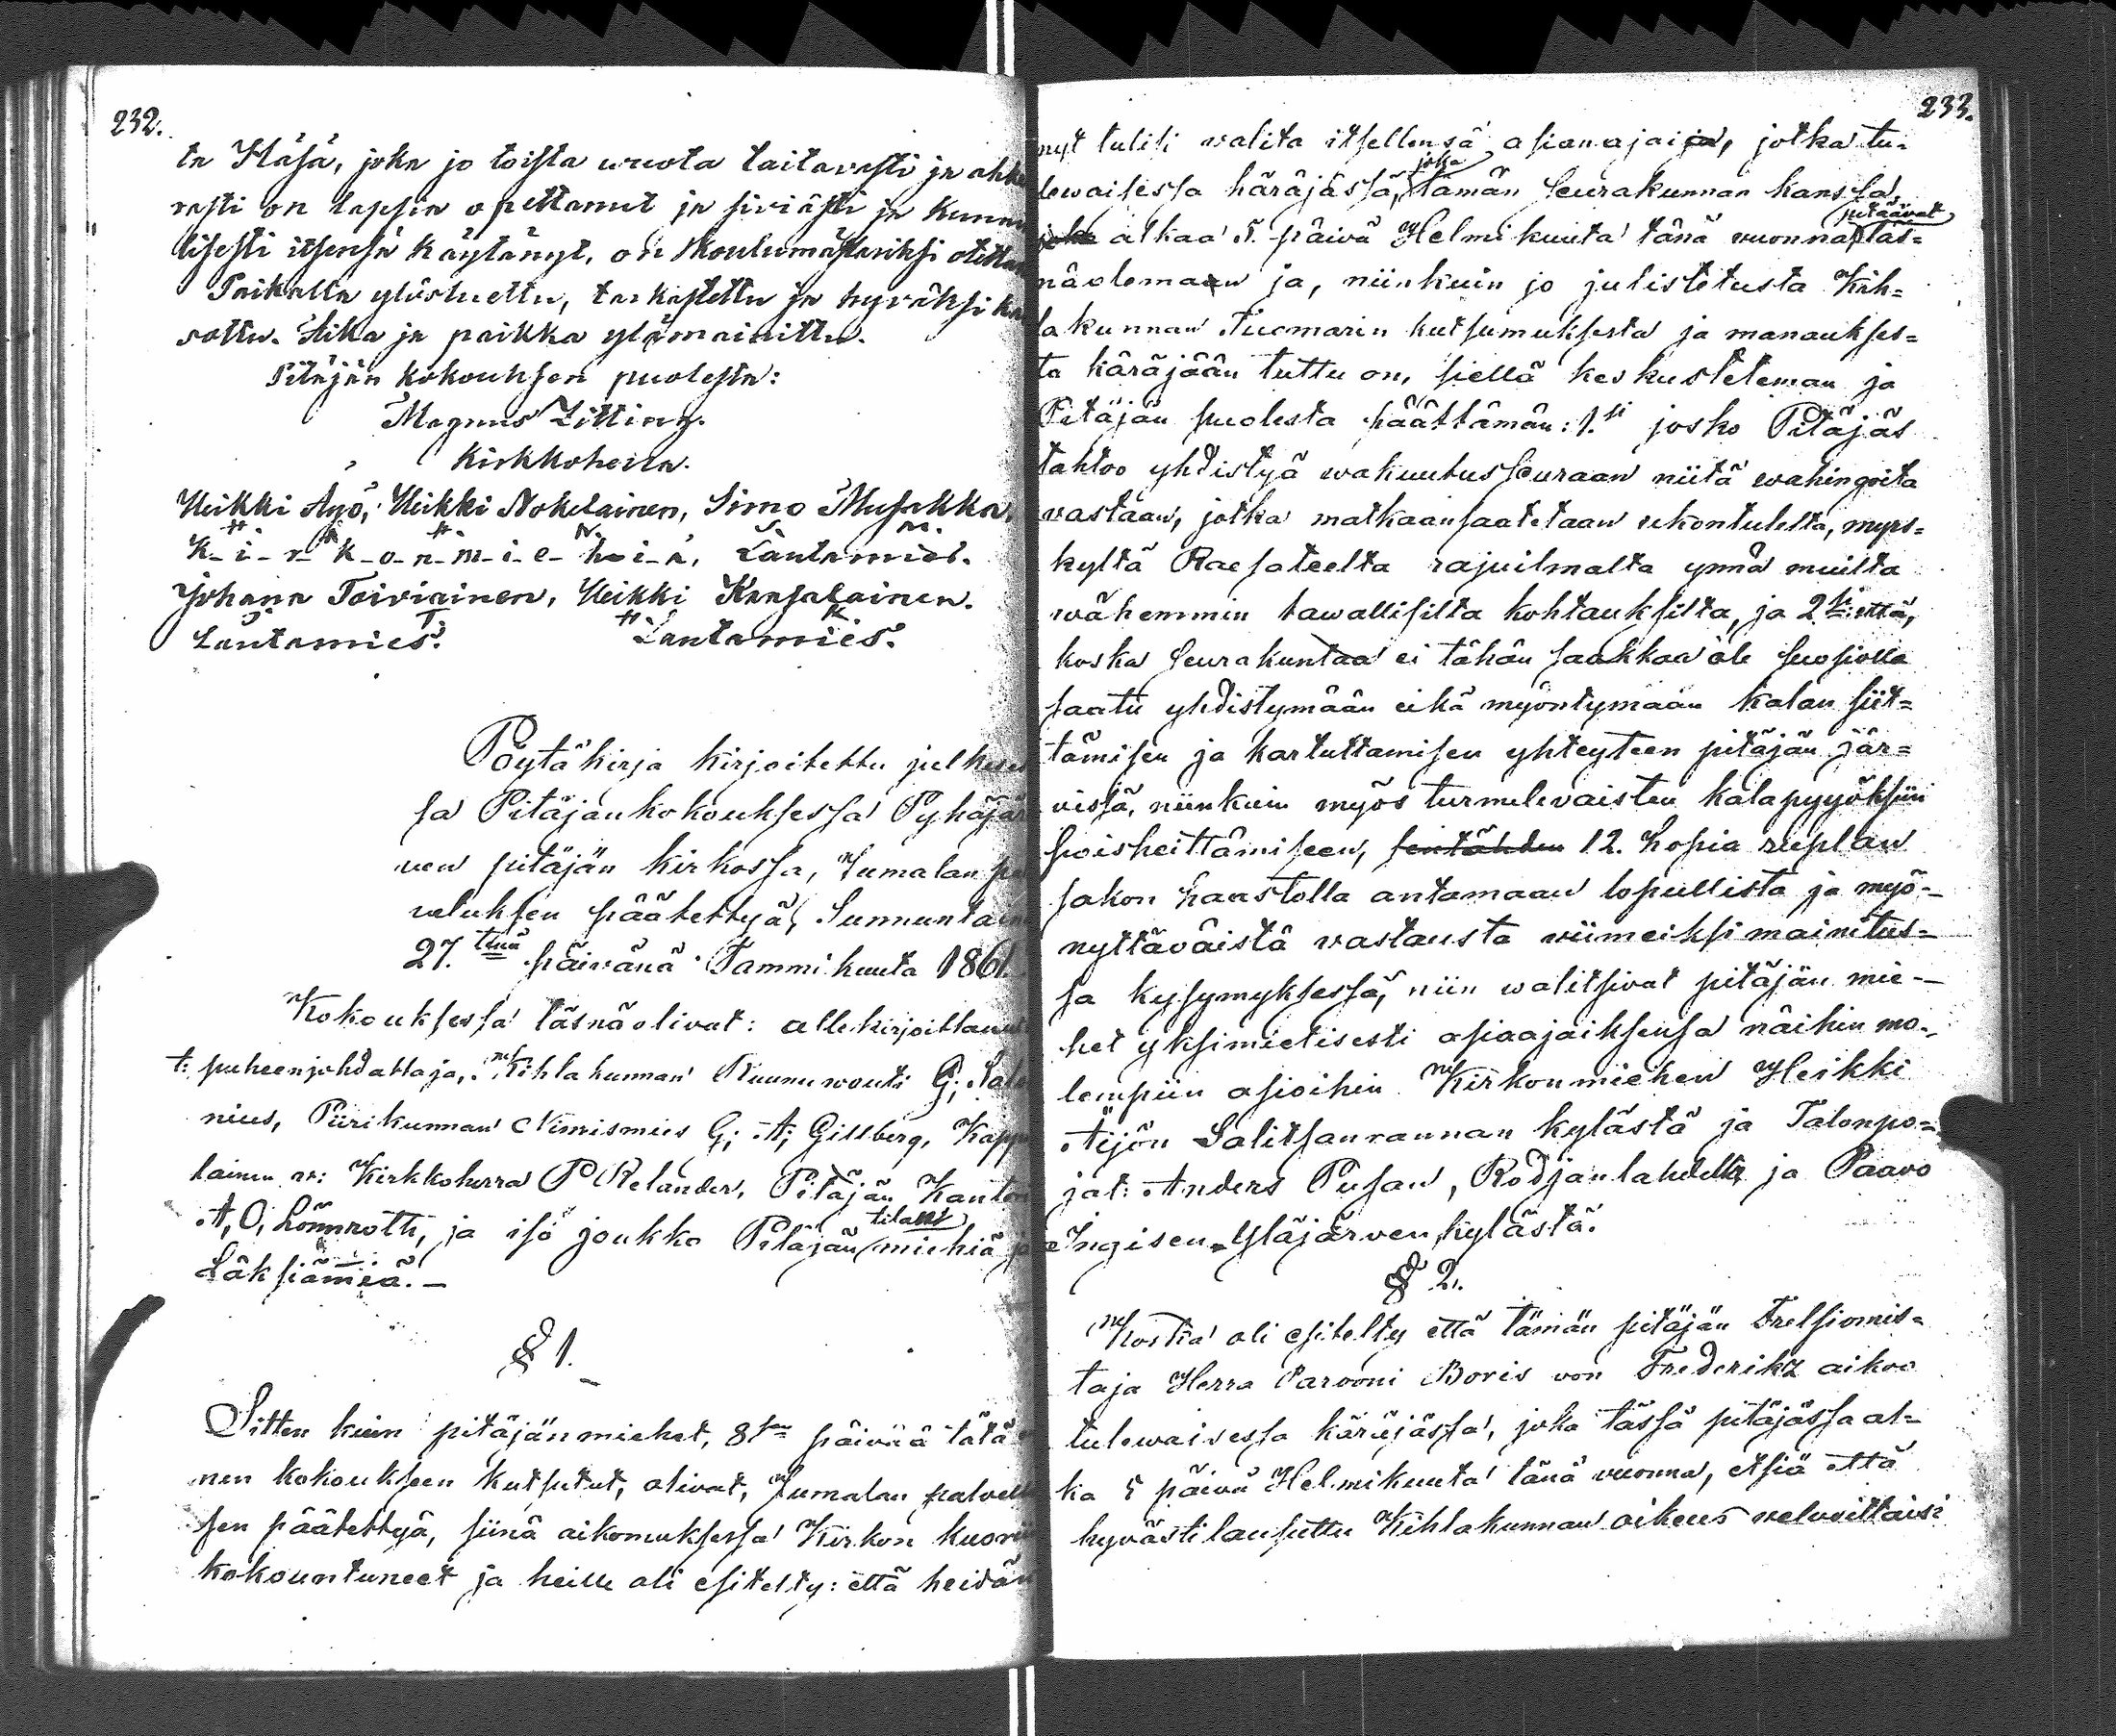 232.
ta Häsä, joka jo toista wuota taitavasti ja ahke
rasti on lapsia opettanut ja siviästi ja kunni
lisesti itsensä käytänyt, on Skoulumästariksi otettu
Paikalla ylösluettu, tarkastettu ja hyväksi kat
sottu. Aika ja paikka ylämainittu.
Pitäjän kokouksen puolesta:
Magnus Zitting.
Kirkkoherra.
Heikki Äyö, Heikki Nokelainen, Simo Musakka.
K-i-r-k-o-n-m-i-e-h-i-ä, Lautamies.
Johana Toiviainen, Heikki Kansalainen.
Lautamies. Lautamies.
Pöytäkirja kirjoitettu julkises
sa Pitäjänkokouksessa Pyhäjär
ven pitäjän kirkossa, Jumalan pa
veluksen päätettyä, Sunnuntaina
27. tenä päivänä Tammikuuta 1861.
Kokouksessa läsnäolivat: allekirjoittanut
t: puheenjohdattaja, Kihlakunnan Ruunuwouti G;
nius, Piirikunnan Nimismies G; A; Gillberg, Kapp
lainen w: Kirkkoherra P Relander, Pitäjän Kantor
A, O, Lönnroth, ja iso joukko Pitäjän tilan miehiä ja
Läksiämiä. —
§ 1.
Sitten kuin pitäjänmiehet, 8 päivää tätä
nen kokoukseen kutsutut, olivat, Jumalan palvelu
sen päätettyä, siinä aikomuksessa Kirkon kuoriin
kokountuneet ja heille oli esitelty: että heidän
233.
nyt tulisi walita itsellensä asianajaija, jotka tu-
lewaisessa käräjässä, joka tämän seurakunnan kanssa
joka alkaa 5. päivä Helmikuuta tänä wuonna, pitäävät läs=
näolemaan ja, niinkuin jo julistetusta Kih=
lakunnan Tuomarin kutsumuksesta ja manaukses=
ta käräjään tuttu on, siellä keskusteleman ja
Pitäjän puolesta päättämän: 1.si josko Pitäjäs
tahtoo yhdistyä wakuutusseuraan niitä wahingoita
vastaan, jotka matkaansaatetaan ukontulesta, myrs=
kyltä Raesateelta rajuilmalta ynnä muilta
wähemmin tawallisilta kohtauksilta, ja 2.si että,
koska Seurakuntaa ei tähän saakkaa ole suosiolla
saatu yhdistymään eikä myöntymään kalan siit=
tämisen ja kartuttamisen yhteyteen pitäjän jär=
vissä, niinkuin myös turmelevaisten kalapyyöksiin
poisheittämiseen, sentähden 12. hopia ruplan
sakon haastolla antamaan lopullista ja myö-
nyttäväistä vastausta viimeiksi mainitus=
sa kysymyksessä, niin walitsivat pitäjän mie-
het yksimielisesti asiaajaiksensa näihin mo-
lempiin asioihin Kirkonmiehen Heikki
Äijön Salitsanrannan kylästä ja Talonpo=
jat: Anders Pusan, Rodjanlahdelta, ja Paavo
Ingisen Yläjärven kylästä.
§ 2.
Koska oli esitelty että tämän pitäjän Frelsiomis=
taja Herra Parooni Boris von Frederikz aikoo
tulewaisessa käräjässä, joka tässä pitäjässä al=
ka 5 päivä Helmikuuta tänä vuonna, etsiä että
hyvästilausuttu Kihlakunnan oikeus velvoittaisi